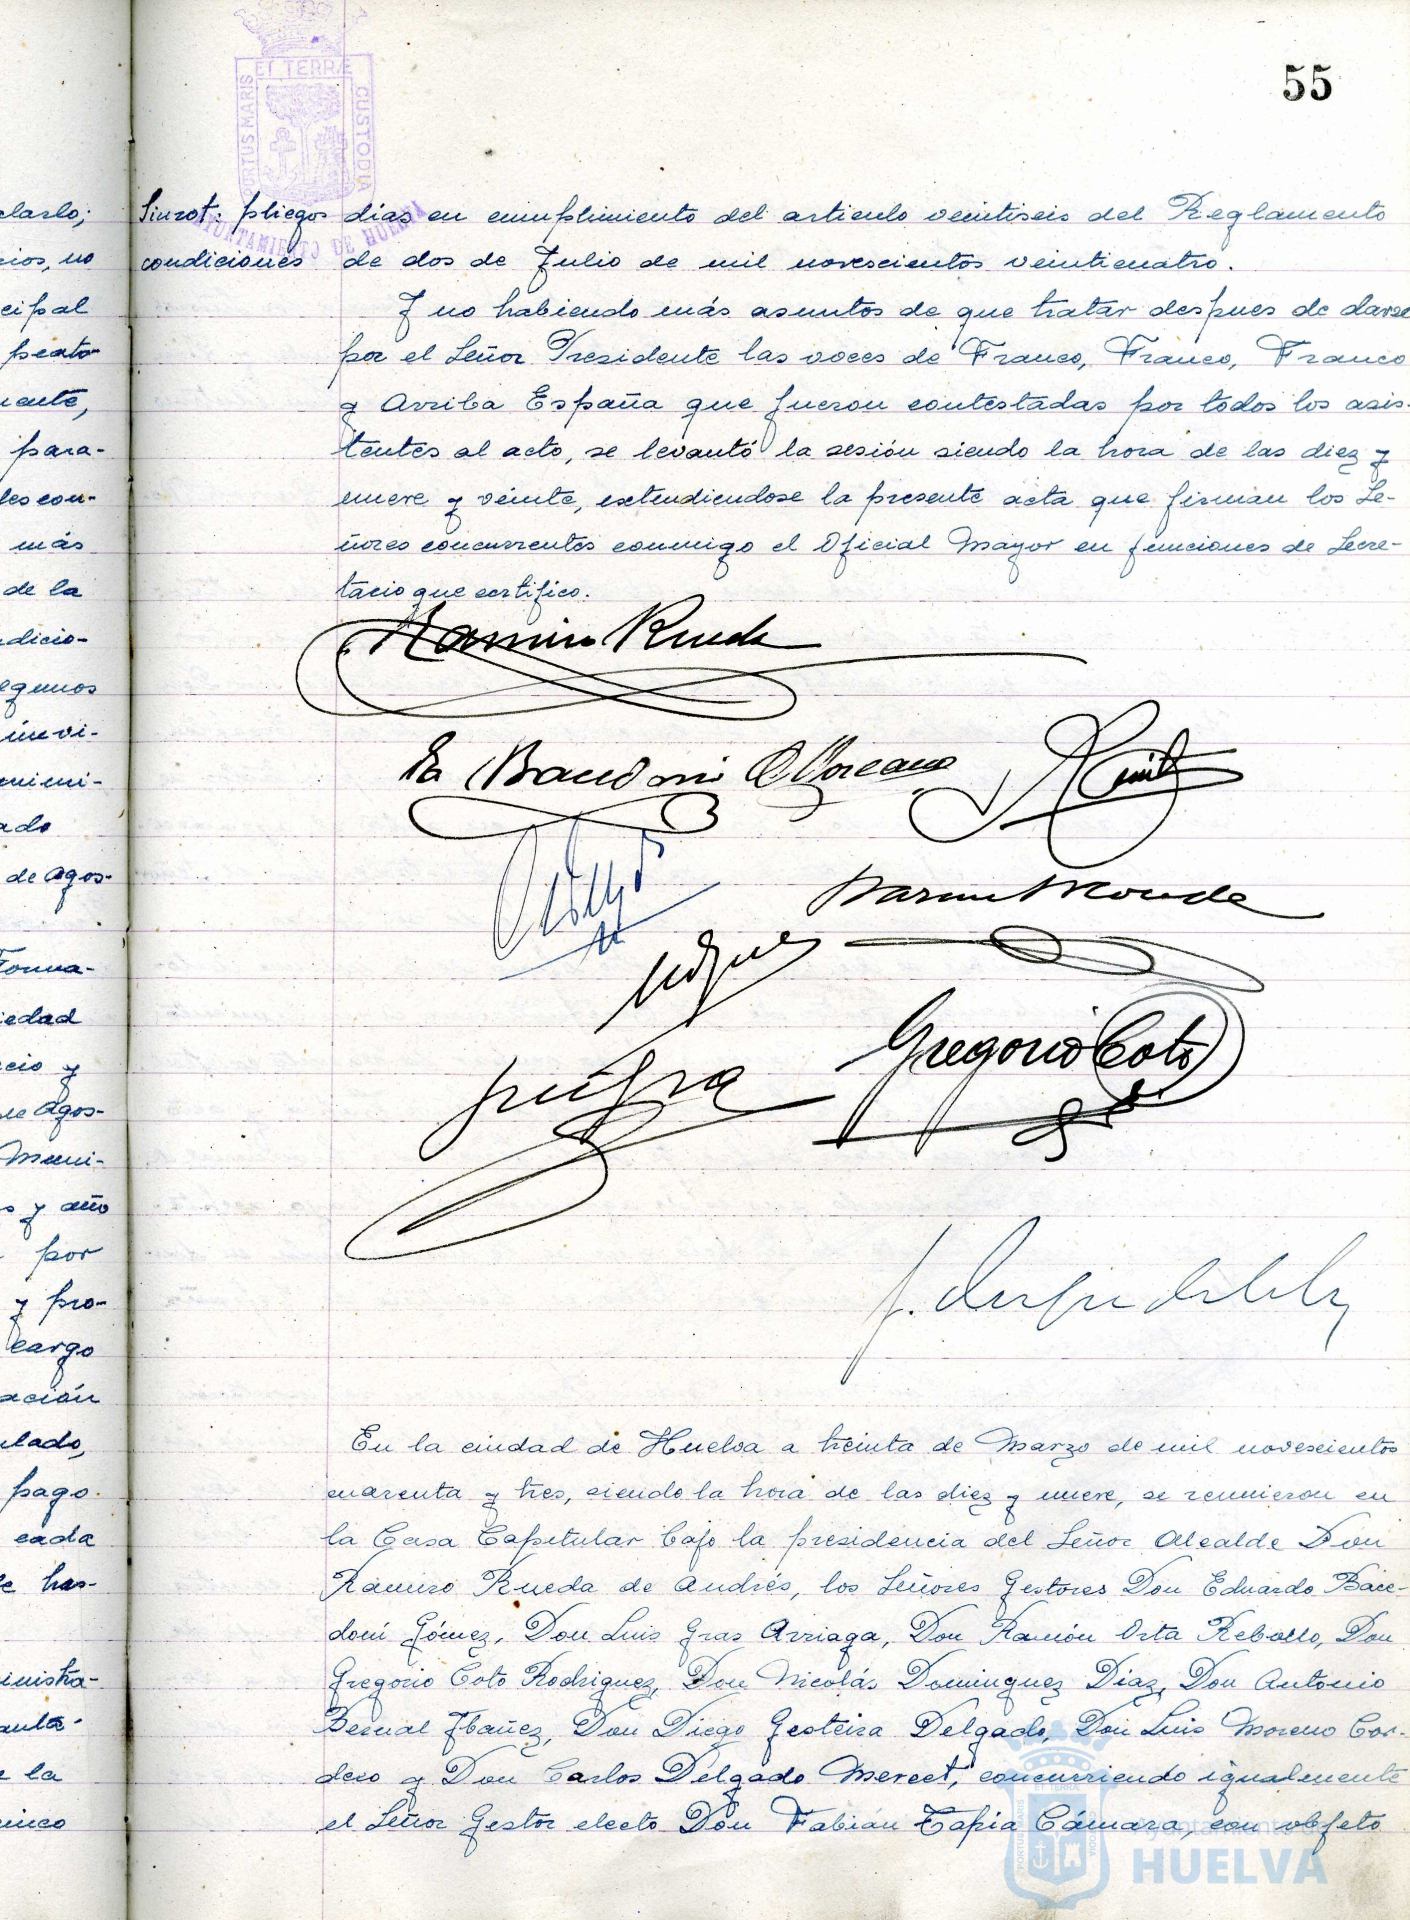 55
ET TERRÆ
PORTUS MARIS
CUSTODIA
AYUNTAMIENTO DE HUELVA
clarlo;
cios, no
cipal
para-
más
de la
dicio-
ado
de Agos-
Forma-
iedad
cio y
de Agos-
Muni-
s y año
por
y pro-
cargo
ación
ulado,
pago
cada
e has-
inistra-
e la
inco
Siurot: pliegos
condiciones
días en cumplimiento del articulo veintiseis del Reglamento
de dos de Julio de mil novescientos veinticuatro.
Y no habiendo más asuntos de que tratar despues de darse
por el Señor Presidente las voces de Franco, Franco, Franco
y Arriba España que fueron contestadas por todos los asis-
tentes al acto, se levantó la sesión siendo la hora de las diez y
nueve y veinte, extendiendose la presente acta que firman los Se-
ñores concurrentes conmigo el Oficial Mayor en funciones de Secre-
tario que certifico.
Ramiro Rueda
Gregorio Coto
En la ciudad de Huelva a treinta de Marzo de mil novescientos
cuarenta y tres, siendo la hora de las diez y nueve, se reunieron en
la Casa Capitular bajo la presidencia del Señor Alcalde Don
Ramiro Rueda de Andrés, los Señores Gestores Don Eduardo Bace-
doni Gómez, Don Luis Gras Arriaga, Don Ramón Orta Rebollo, Don
Gregorio Coto Rodriguez, Don Nicolás Dominguez Diaz, Don Antonio
Bernal Ibañez, Don Diego Gesteira Delgado, Don Luis Moreno Cor-
dero y Don Carlos Delgado Mercet, concurriendo igualmente
el Señor Gestor electo Don Fabián Tapia Cámara, con objeto
Ayuntamiento de
HUELVA